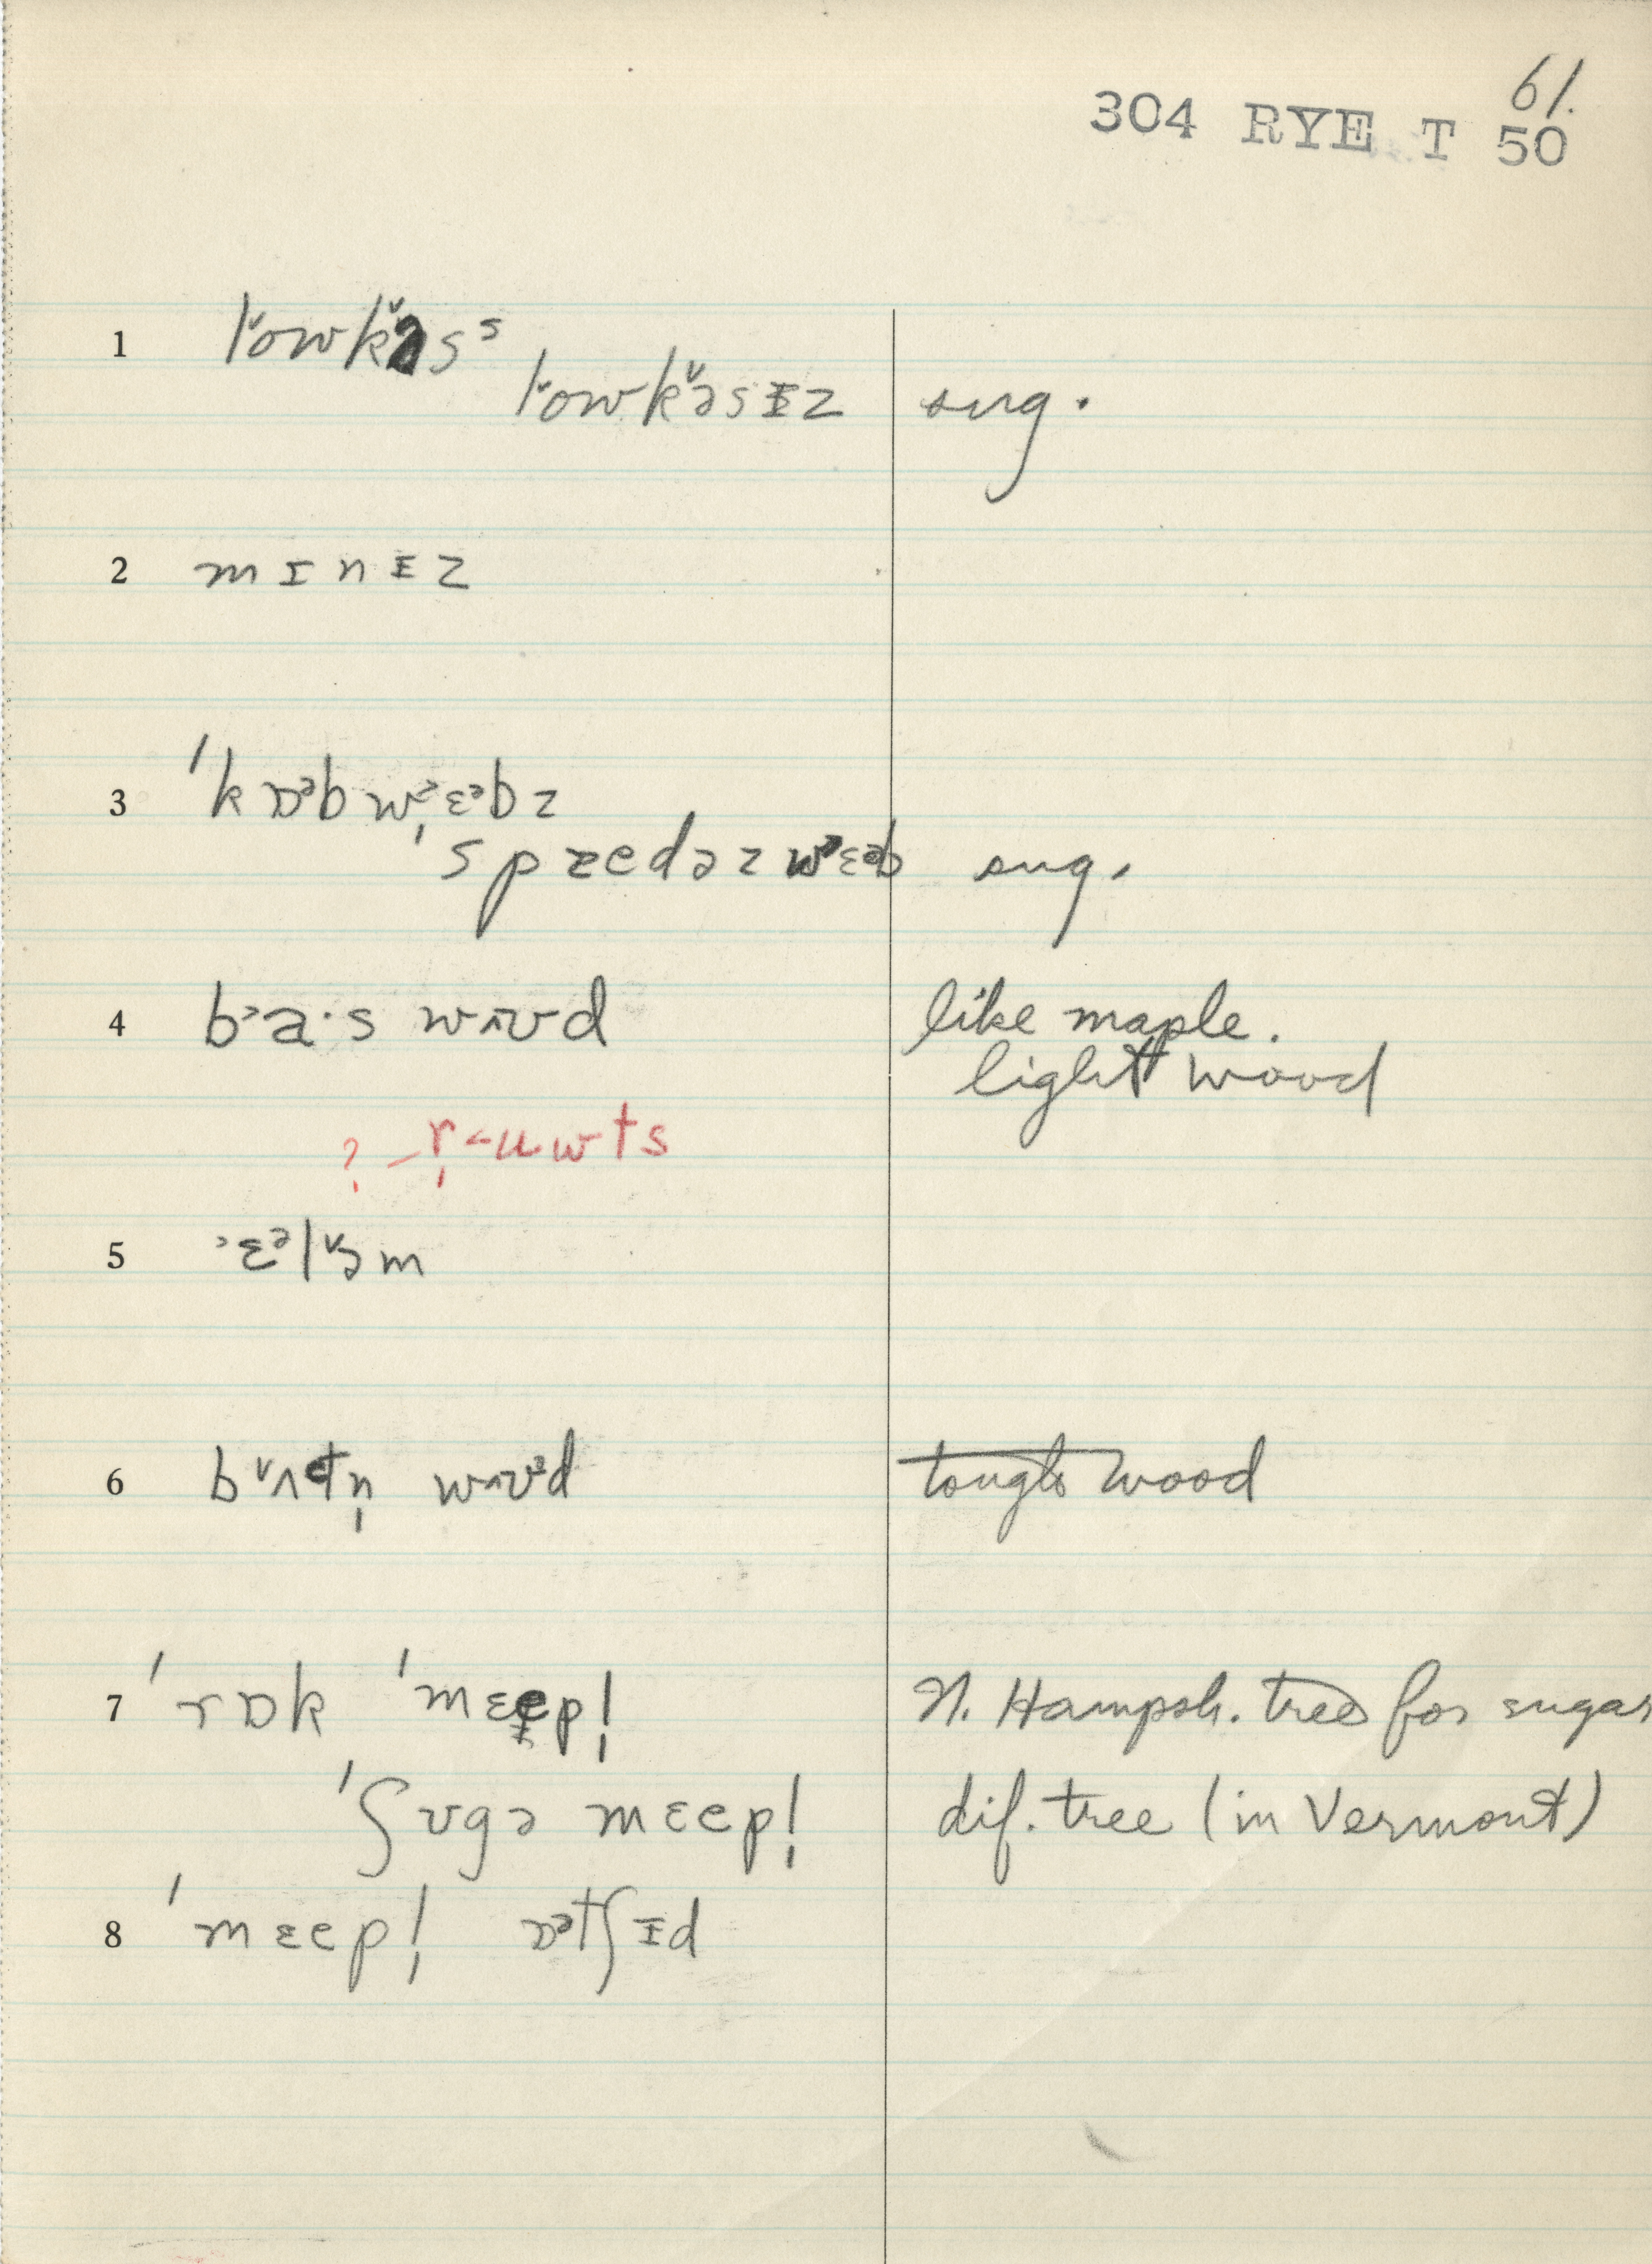 61.
304 RYE T 50
1 l˅owk˅əs ˢ
l˅owk˅əsᵻz sug.
2 mɪnᵻz
3 ˈkɒᵊbwˀ̩ɛᵊbz
ˈspæedəzwˀɛᵊb sug.
4 b˃a·s wʌʊd like maple.
light wood
? –r̩˂uwts
5 ˃ɛᵊl˅əm
6 b˅ʌtn̩ wʌʊᵊd tough wood
7 ˈrɒk ˈmɛepl̩ N. Hampsh. tree for sugar
ˈʃʊgə mɛepl̩ dif. tree (in Vermont)
8 ˈmɛepl̩ ɒᵊtʃᵻd